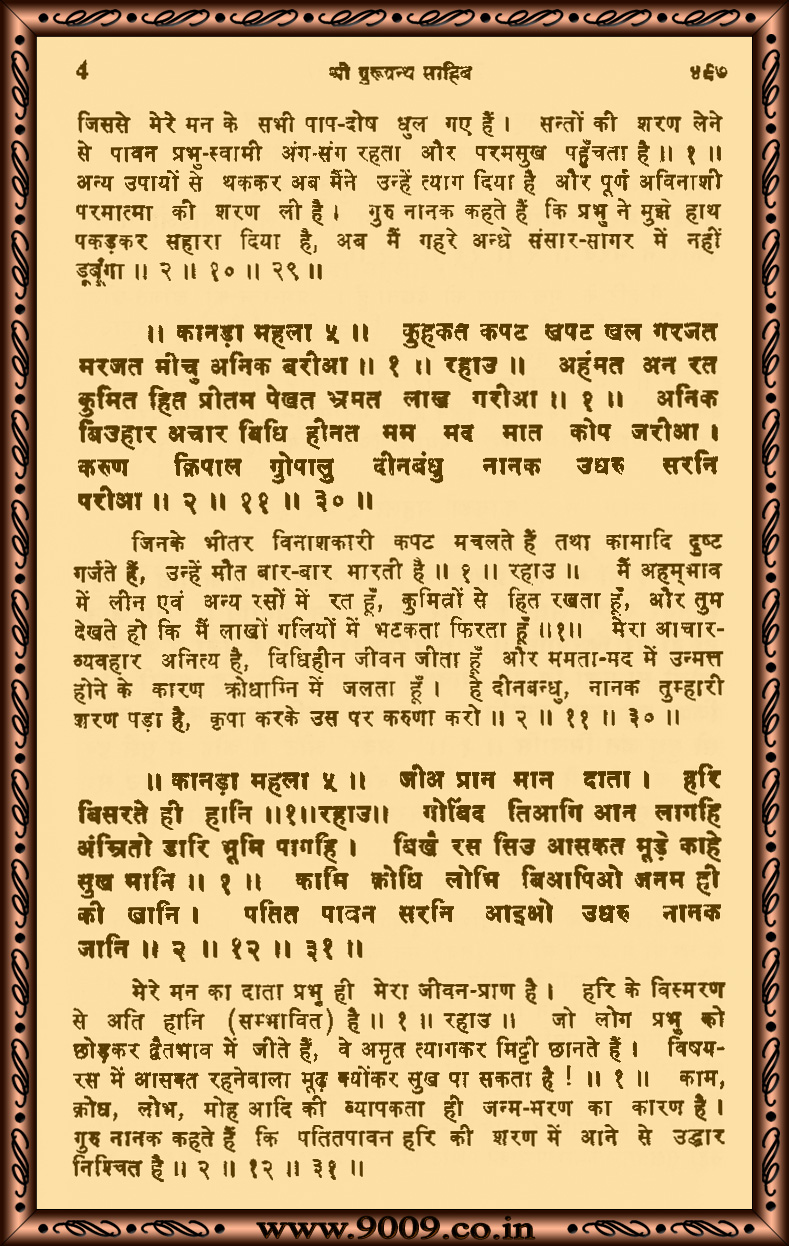 4 श्री गुरूग्रन्थ साहिब ४६७
जिससे मेरे मन के सभी पाप-दोष धुल गए हैं । सन्तों की शरण लेने
से पावन प्रभु-स्वामी अंग-संग रहता और परमसुख पहुँचता है ॥ १ ॥
अन्य उपायों से थककर अब मैंने उन्हें त्याग दिया है और पूर्ण अविनाशी
परमात्मा की शरण ली है । गुरु नानक कहते हैं कि प्रभु ने मुझे हाथ
पकड़कर सहारा दिया है, अब मैं गहरे अन्धे संसार-सागर में नहीं
डूबूंगा ॥ २ ॥ १० ॥ २९ ॥
॥ कानड़ा महला ५ ॥ कुहकत कपट खपट खल गरजत
मरजत मीचु अनिक बरीआ ॥ १ ॥ रहाउ ॥ अहंमत अन रत
कुमित हित प्रीतम पेखत भ्रमत लाख गरीआ ॥ १ ॥ अनिक
बिउहार अचार बिधि हीनत मम मद मात कोप जरीआ ।
करुण क्रिपाल गोुपालु दीनबंधु नानक उधरु सरनि
परीआ ॥ २ ॥ ११ ॥ ३० ॥
जिनके भीतर विनाशकारी कपट मचलते हैं तथा कामादि दुष्ट
गर्जते हैं, उन्हें मौत बार-बार मारती है ॥ १ ॥ रहाउ ॥ मैं अहम्‌भाव
में लीन एवं अन्य रसों में रत हूँ, कुमित्रों से हित रखता हूँ, और तुम
देखते हो कि मैं लाखों गलियों में भटकता फिरता हूँ ॥१॥ मेरा आचार-
व्यवहार अनित्य है, विधिहीन जीवन जीता हूँ और ममता-मद में उन्मत्त
होने के कारण क्रोधाग्नि में जलता हूँ । हे दीनबन्धु, नानक तुम्हारी
शरण पड़ा है, कृपा करके उस पर करुणा करो ॥ २ ॥ ११ ॥ ३० ॥
॥ कानड़ा महला ५ ॥ जीअ प्रान मान दाता । हरि
बिसरते ही हानि ॥१॥रहाउ॥ गोबिंद तिआगि आन लागहि
अंम्रितो डारि भूमि पागहि । बिखै रस सिउ आसकत मूड़े काहे
सुख मानि ॥ १ ॥ कामि क्रोधि लोभि बिआपिओ जनम ही
की खानि । पतित पावन सरनि आइओ उधरु नानक
जानि ॥ २ ॥ १२ ॥ ३१ ॥
मेरे मन का दाता प्रभु ही मेरा जीवन-प्राण है । हरि के विस्मरण
से अति हानि (सम्भावित) है ॥ १ ॥ रहाउ ॥ जो लोग प्रभु को
छोड़कर द्वैतभाव में जीते हैं, वे अमृत त्यागकर मिट्टी छानते हैं । विषय-
रस में आसक्त रहनेवाला मूढ़ क्योंकर सुख पा सकता है ! ॥ १ ॥ काम,
क्रोध, लोभ, मोह आदि की व्यापकता ही जन्म-मरण का कारण है ।
गुरु नानक कहते हैं कि पतितपावन हरि की शरण में आने से उद्धार
निश्चित है ॥ २ ॥ १२ ॥ ३१ ॥
www.9009.co.in